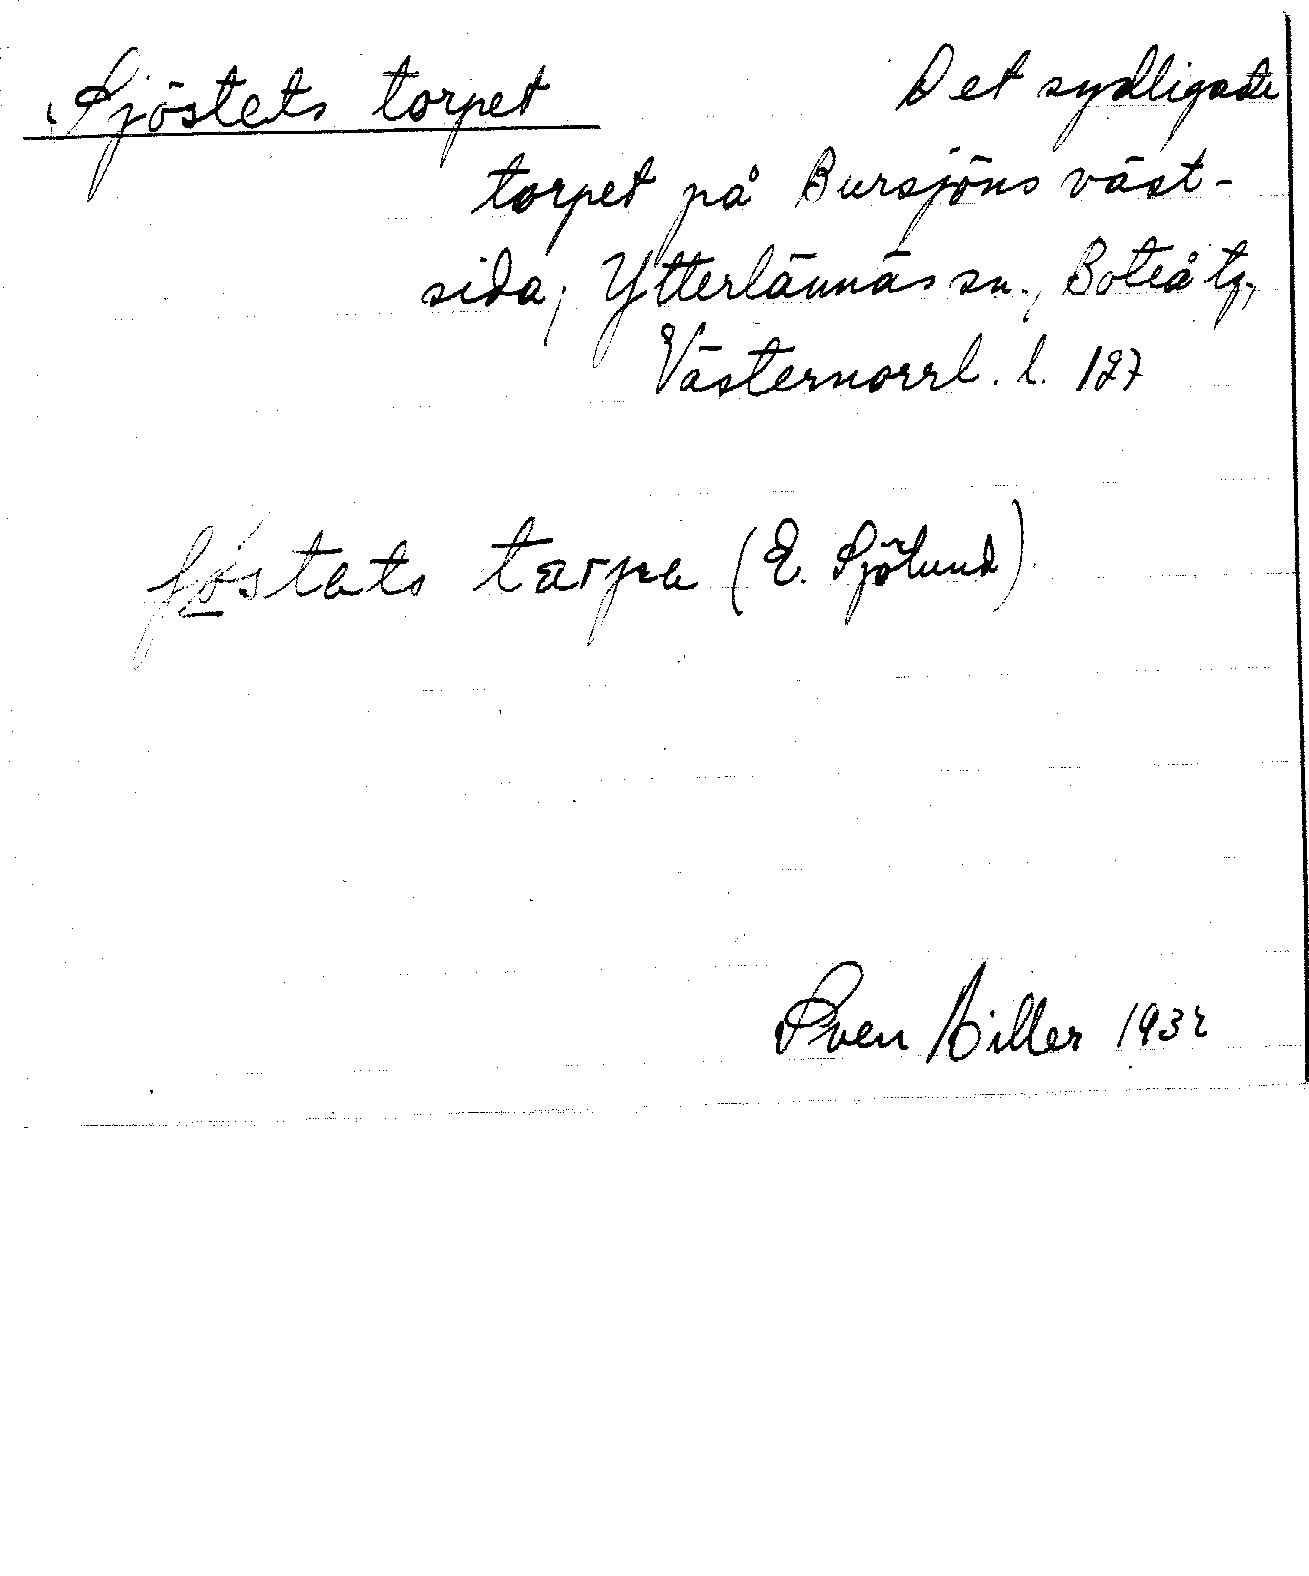 Sjöstets torpet Det sydligaste
torpet på Bursjöns väst-
sida, Ytterlännäs sn., Boteå tg,
Västernorrl. l. 127
ʃøstats tarpa (E. Sjölund)
Sven Hiller 1932